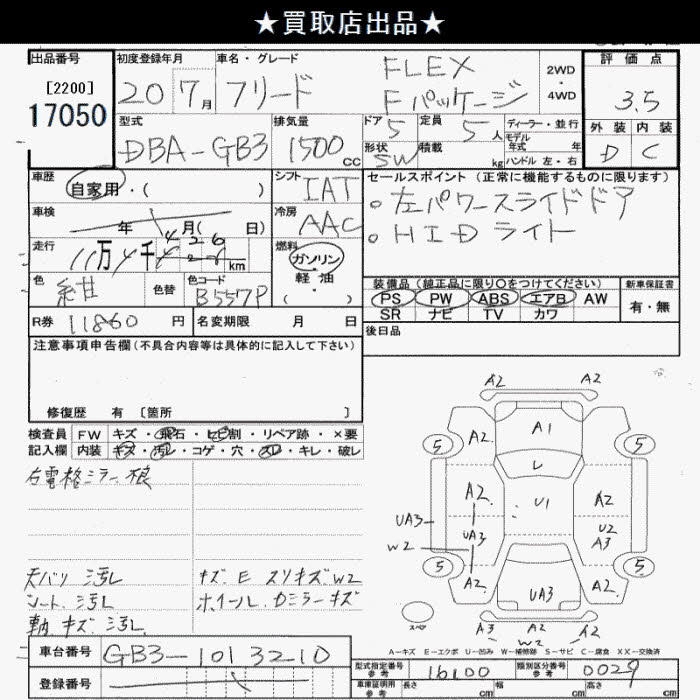 ★買取店出品★
出品番号
[2200]
17050
初度登録年月
20 7月
車名・グレード
フリード
FLEX
Fパッケージ
2WD
・
4WD
評価点
3.5
外装 内装
D C
型式
DBA-GB3
排気量
1500cc
ドア 5
定員 5人
ディーラー・並行
モデル年式 年
形状 SW
積載 kg
ハンドル 左・右
車歴
自家用・( )
シフト
IAT
車検
年 月( 日)
冷房
AAC
走行
11万4千 km
燃料
ガソリン
軽油
( ・ )
色
紺
色替
色コード
B557P
R券 11860 円
名変期限 月 日
セールスポイント (正常に機能するものに限ります)
○左パワースライドドア
○HIDライト
装備品 (純正品に限り○をつけてください)
PS PW ABS エアB AW
SR ナビ TV カワ
新車保証書
有・無
後日品
注意事項申告欄(不具合内容等は具体的に記入して下さい)
修復歴 有 [箇所 ]
検査員 FW キズ・飛石・ヒビ割・リペア跡・×要
記入欄 内装 キズ・汚レ・コゲ・穴・スレ・キレ・破レ
右電格ミラー
天バリ 汚レ
シート 汚レ
キズ.汚レ
キズ.E スリキズ W2
ホイール.Dミラーキズ
A2 A2
A2 A1
5 5
レ
A2 U1 A2
UA3 UA3 U2
A3
W2
5 5
A2 UA3 A2
A3 W2 A2
スペア
A-キズ E-エクボ U-凹み W-補修跡 S-サビ C-腐食 XX-交換済
車台番号 GB3-1013210
登録番号
型式指定番号 参考 16100
類別区分番号 参考 0029
車庫証明用 参考 長さ cm 幅 cm 高さ cm